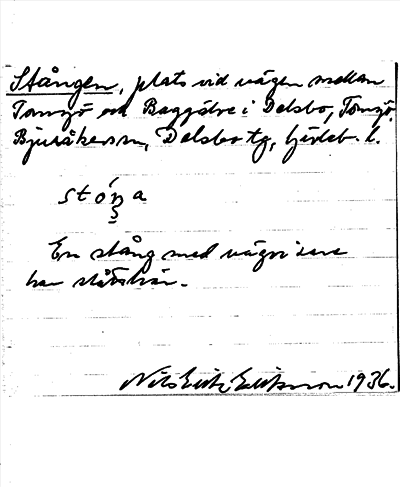 Stången, plats vid vägen mellan
Tomsjö och i Delsbo, Tomsjö,
Bjuråkers sn, Delsbo tg, Gävleb. l.
stóŋa
En stång med vägvisare
har stått här.
Nils Erik Eriksson 1936.